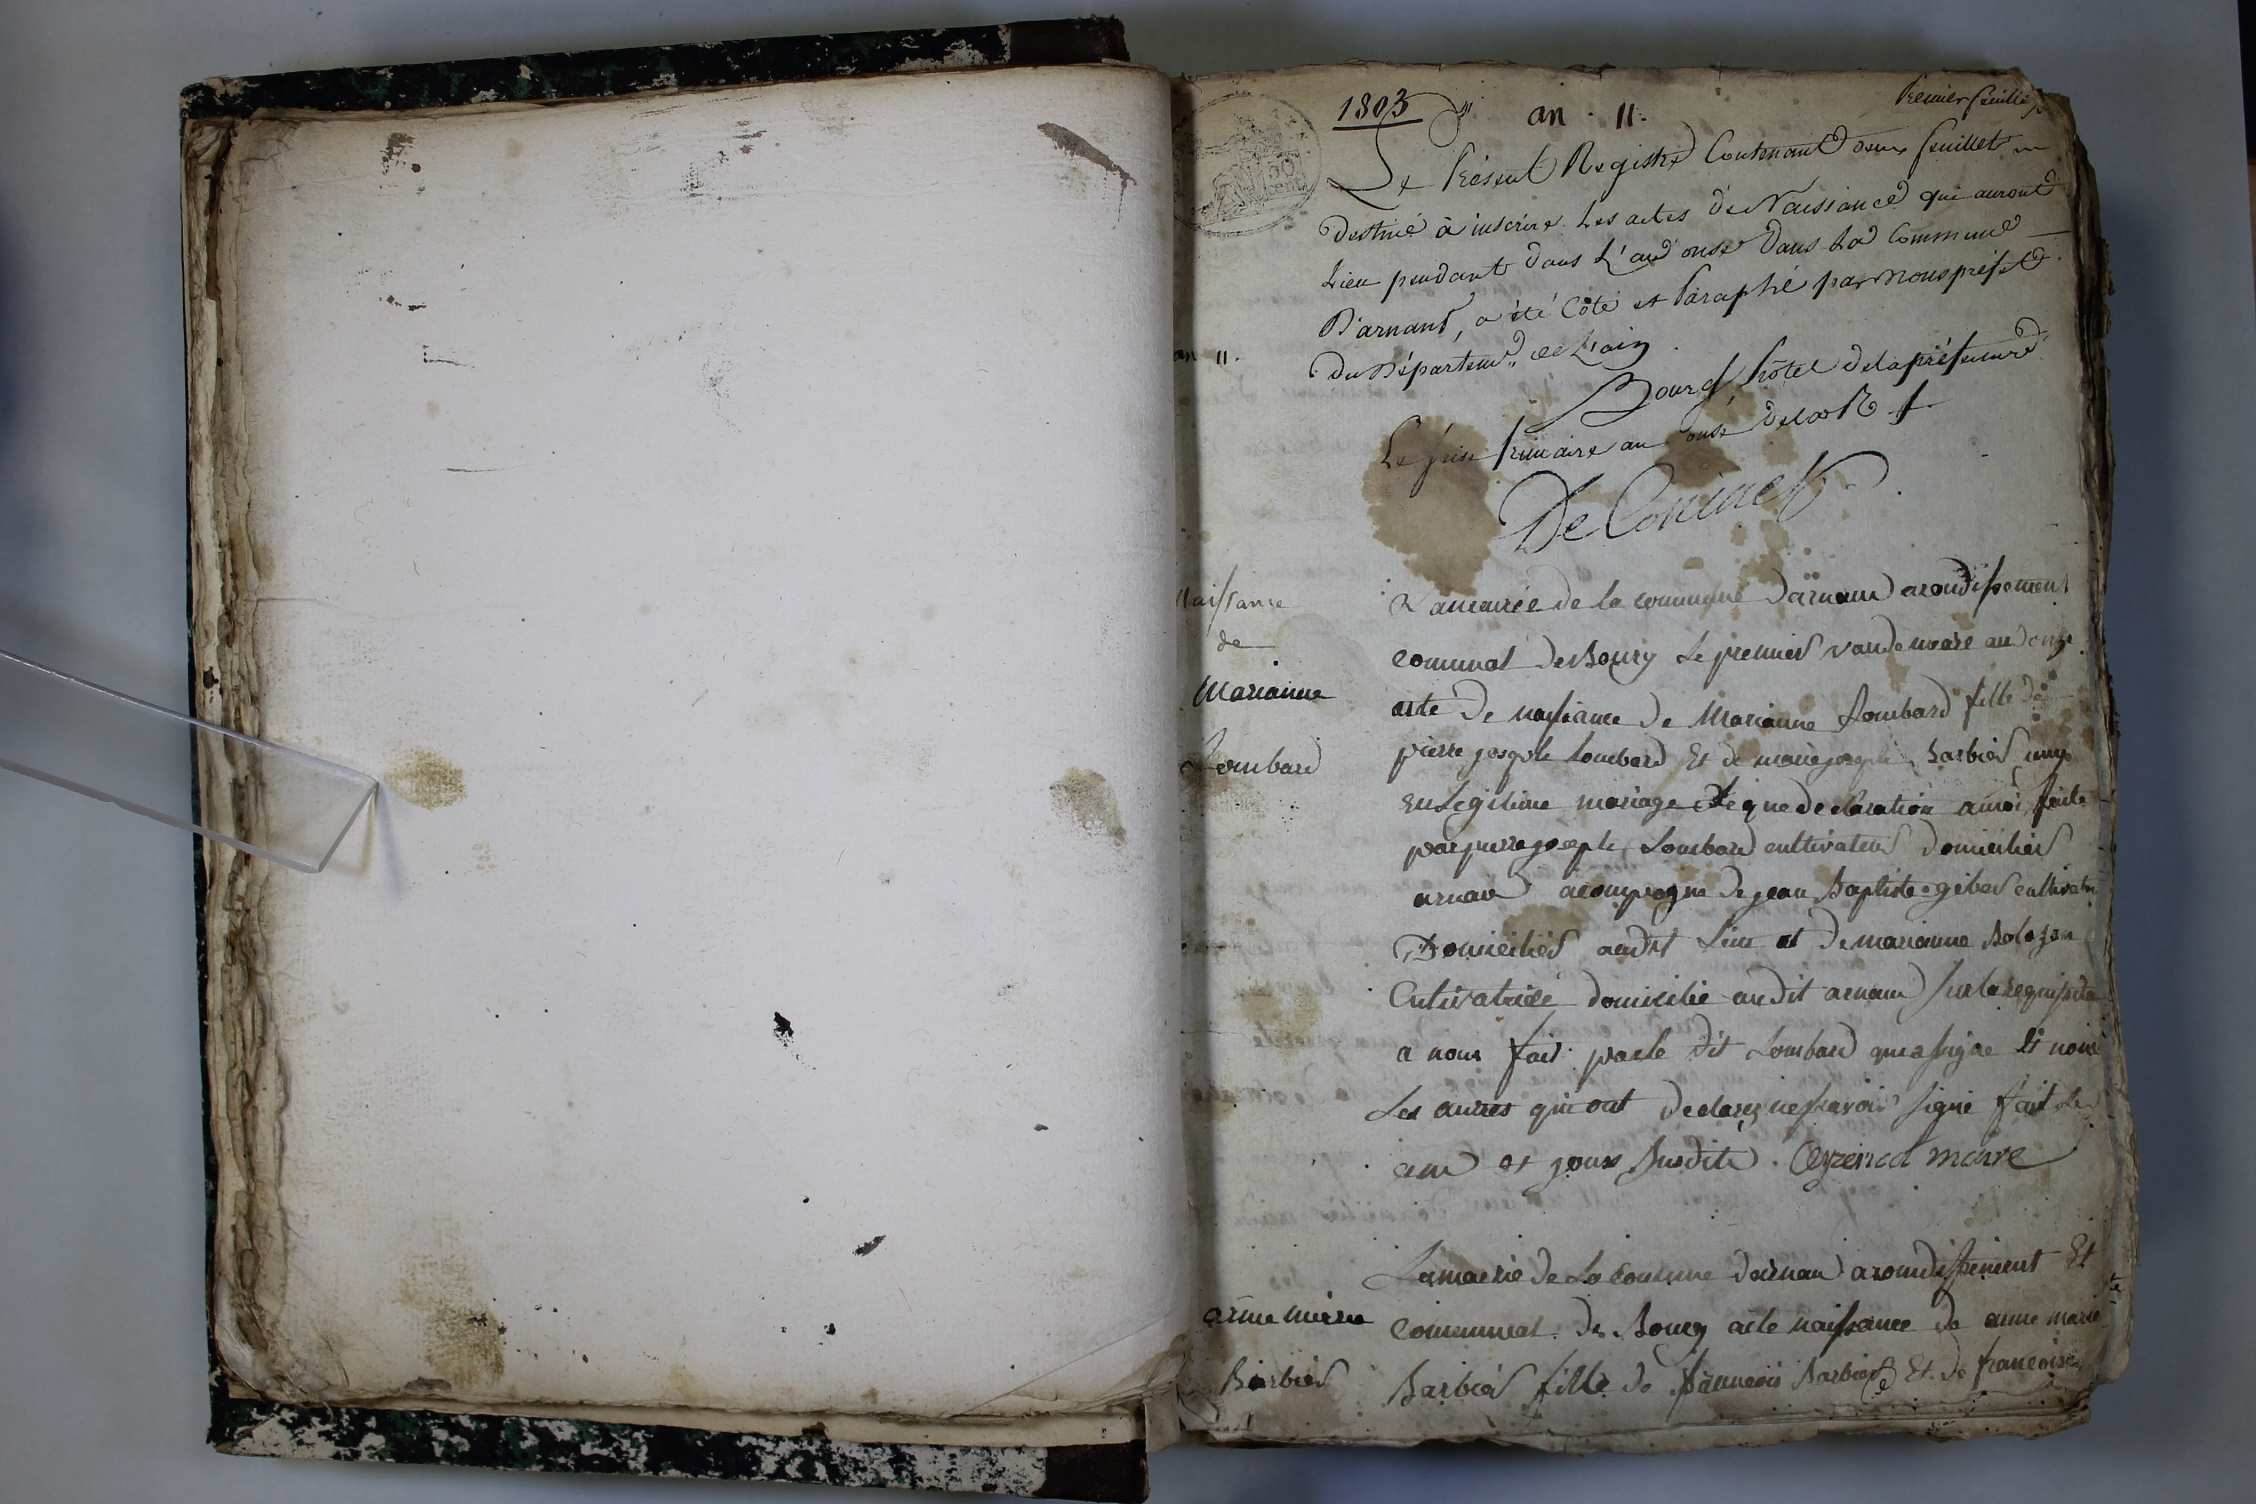 1803
an 11.
Premier feuillet
Le Présent Registre Contenant deux feuillets
Destiné à inscrire Les actes de Naissance qui auront
Lieu pendant dans L'an onze Dans La Commune
D'arnans, a été Coté et Paraphé par nous préfet
Du Départemt. de L'ain
an 11.
Bourg hôtel de la préfecture
Le frimaire an onze de la R f
De Coninck
Naissance
de
Marianne
Lombard
La mairie de la commune darnand arondissement
comunal de Bourg Le premier vandemaire an onze
acte de naissance de Marianne Lombard fille de
pierre joseph Lombard Et de marie joseph Barbier unis
En Legitime mariage declaration ainsi faite
par pierre joseph Lombard cultivateur domicilier
arnand acompagne de jean Baptiste giber cultivateur
Domicilier audit Lieu et de marianne Bologon
Cultivatrice domicilie audit arnand sur la
a nous fait par le dit Lombard qui a signe Et non
Les autres qui ont declarez ne savoir signe fait Les
an et jour Susdits. maire
La mairie de La comune darnand arondissement Et
anne marie
Barbier
Communal de Bourg acte naissance de anne marie
Barbier fille de francois Barbier Et de francoise